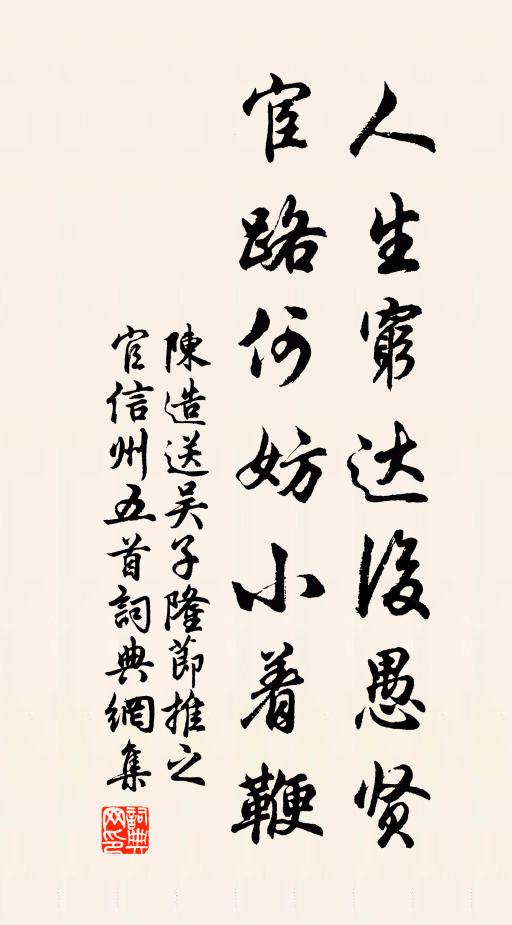 人生窮达後愚贤
宦路何妨小着鞭
陳造送吴子隆節推之
官信州五首詞典網集
詞典網印